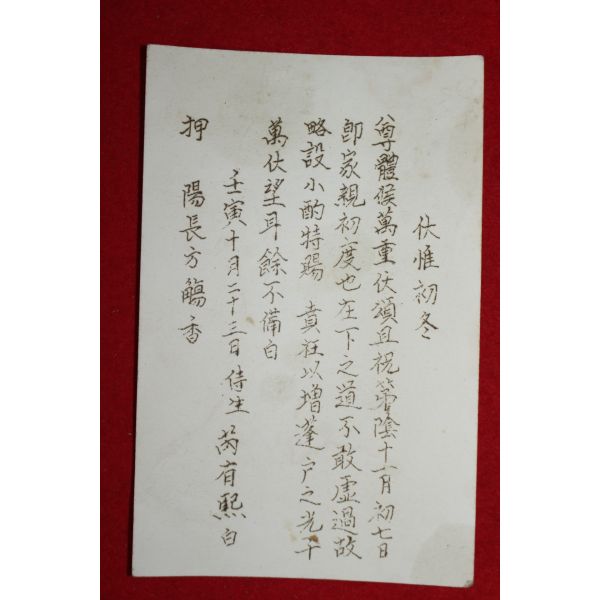 伏惟初冬
尊體候萬重伏頌且祝第陰十一月初七日
卽家親初度也在下之道不敢虛過故
略設小酌特賜 賁枉以增蓬户之光千
萬伏望耳餘不備白
壬寅十月二十三日侍生芮有熙白
押 陽長方觴香